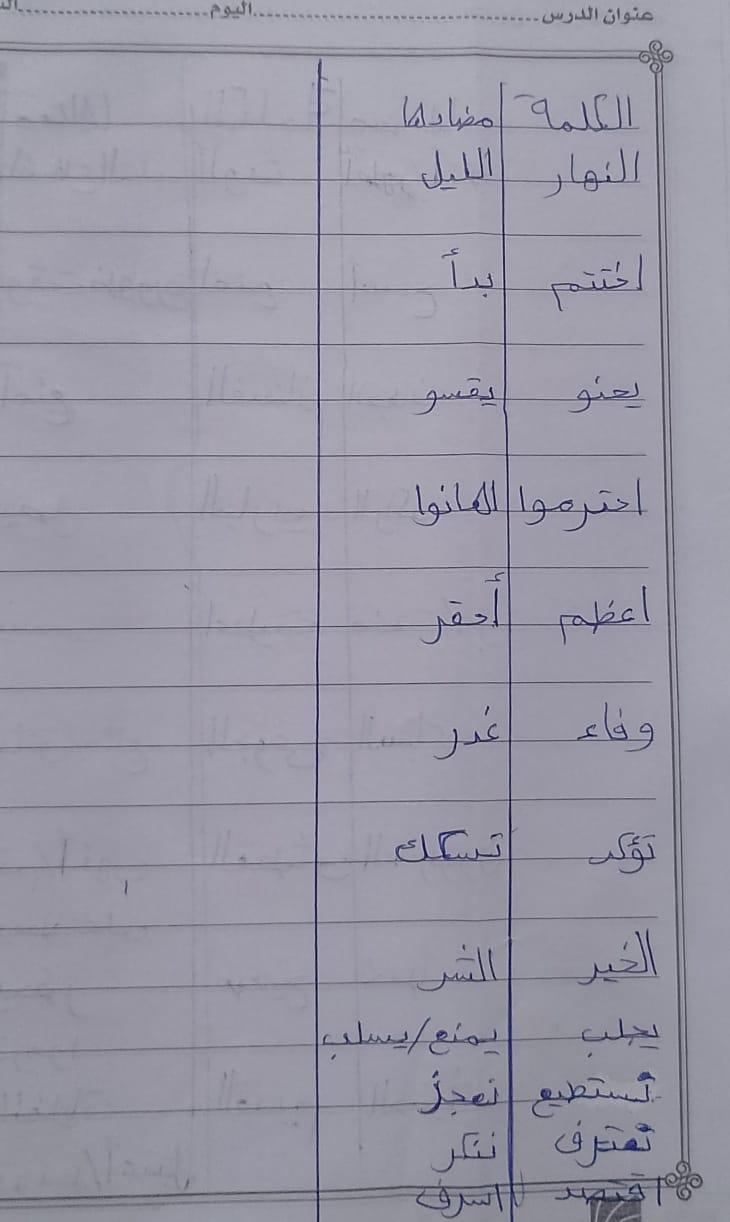 عنوان الدرس ........ اليوم ........
الكلمة مضادها
النهار الليل
اختتم بدأ
يحنو يقسو
احترموا اهانوا
اعظم أحقر
وفاء غدر
تؤكد تشكك
الخير الشر
يجلب يمنع/يسلب
نستطيع نعجز
نعترف ننكر
اقتصد اسرف